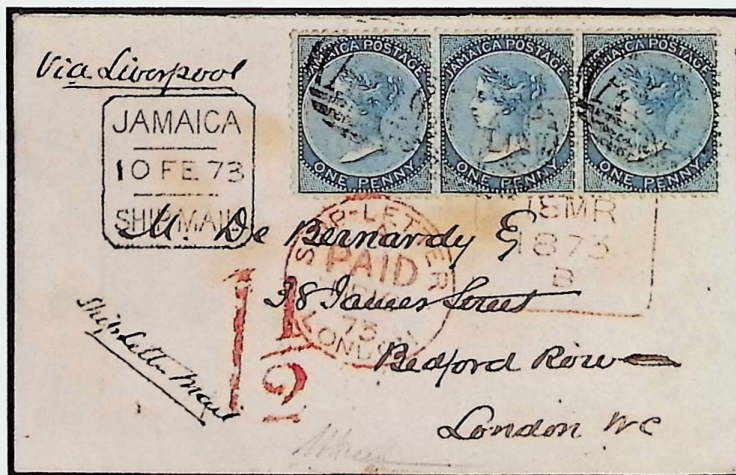 Via Liverpool
JAMAICA POSTAGE
ONE PENNY
JAMAICA POSTAGE
ONE PENNY
JAMAICA POSTAGE
ONE PENNY
JAMAICA
10 FE 73
SHIP MAIL
18MR
1873
B
SHIP-LETTER
PAID
73
LONDON
M. De Bernardy
38 James Street
Bedford Row
London WC
Ship Letter Mail
1